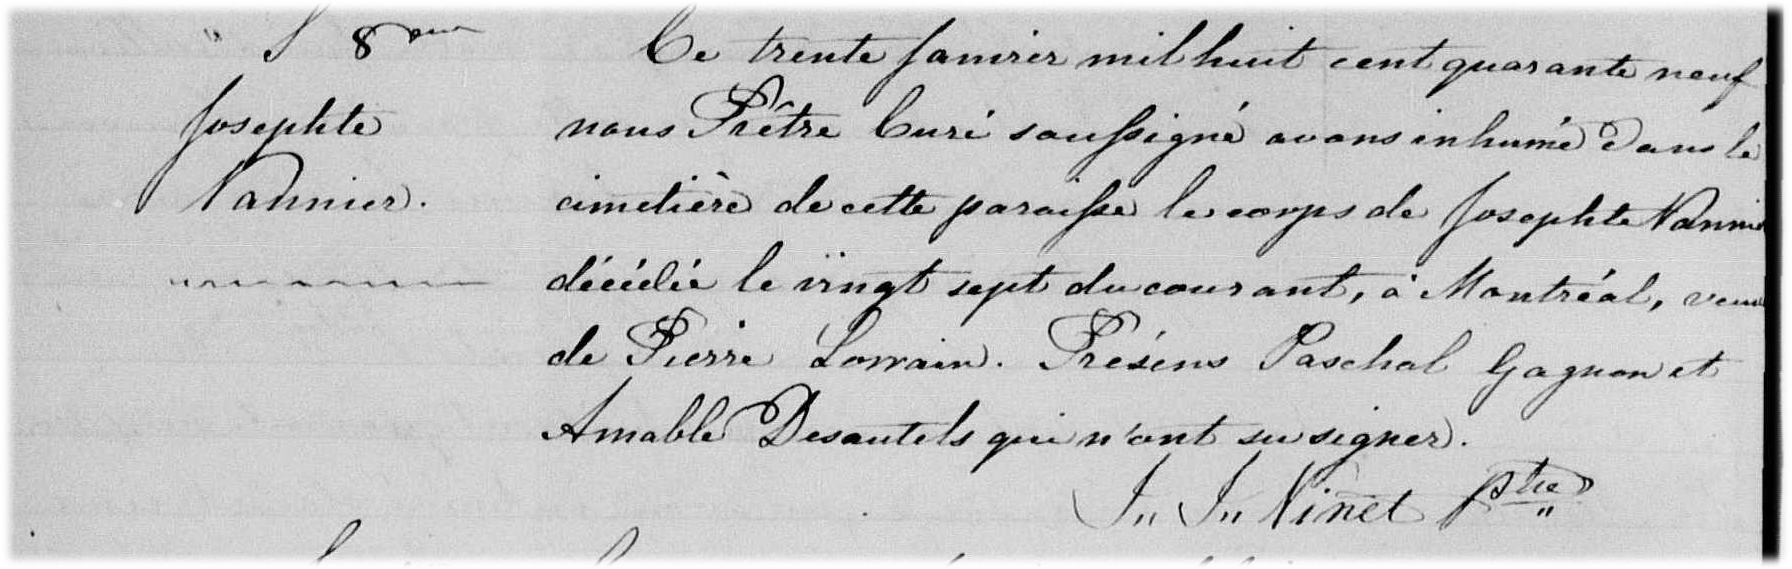 " S 8eme
Josephte
Vannier.
Ce trente Janvier mil huit cent quarante neuf
nous Prêtre Curé soussigné avons inhumé dans le
cimetière de cette paroisse le corps de Josephte Vannier
décédée le vingt sept du courant, à Montréal, veuve
de Pierre Lorrain. Présens Paschal Gagnon et
Amable Desautels qui n'ont su signer.
J,, J,, Vinet Ptre